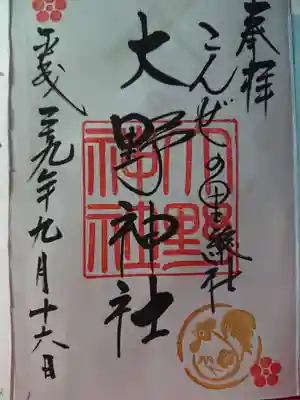 奉拝
こんぜの里総社
大野神社
大野
神社
平成二十九年九月十六日